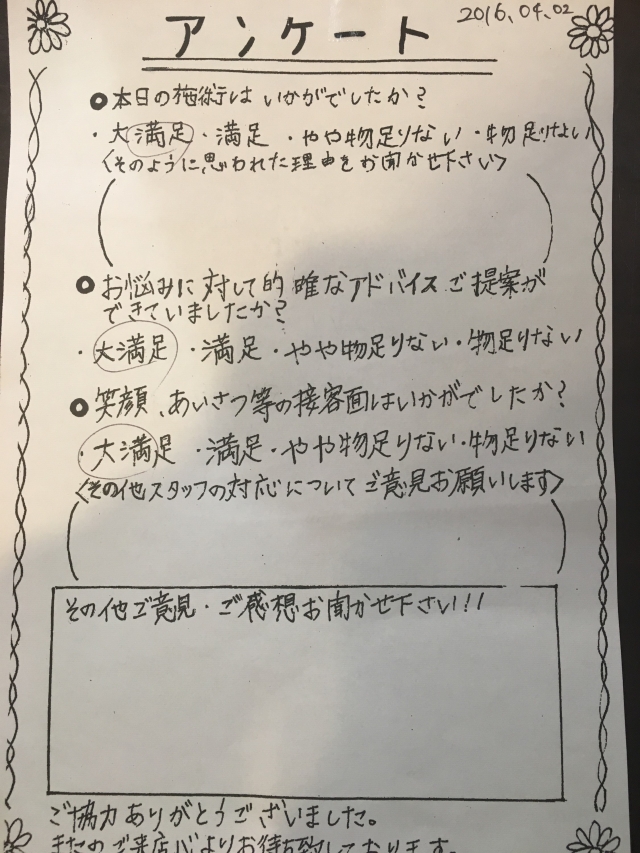 2016.04.02
アンケート
●本日の施術はいかがでしたか?
・大満足・満足・やや物足りない・物足りない
〈そのように思われた理由をお聞かせ下さい〉
●お悩みに対して的確なアドバイスご提案が
できていましたか?
・大満足・満足・やや物足りない・物足りない
●笑顔、あいさつ等の接客面はいかがでしたか?
・大満足・満足・やや物足りない・物足りない
〈その他スタッフの対応についてご意見お願いします〉
その他ご意見・ご感想お聞かせ下さい!!!
ご協力ありがとうございました。
またのご来店心よりお待ち致しております。